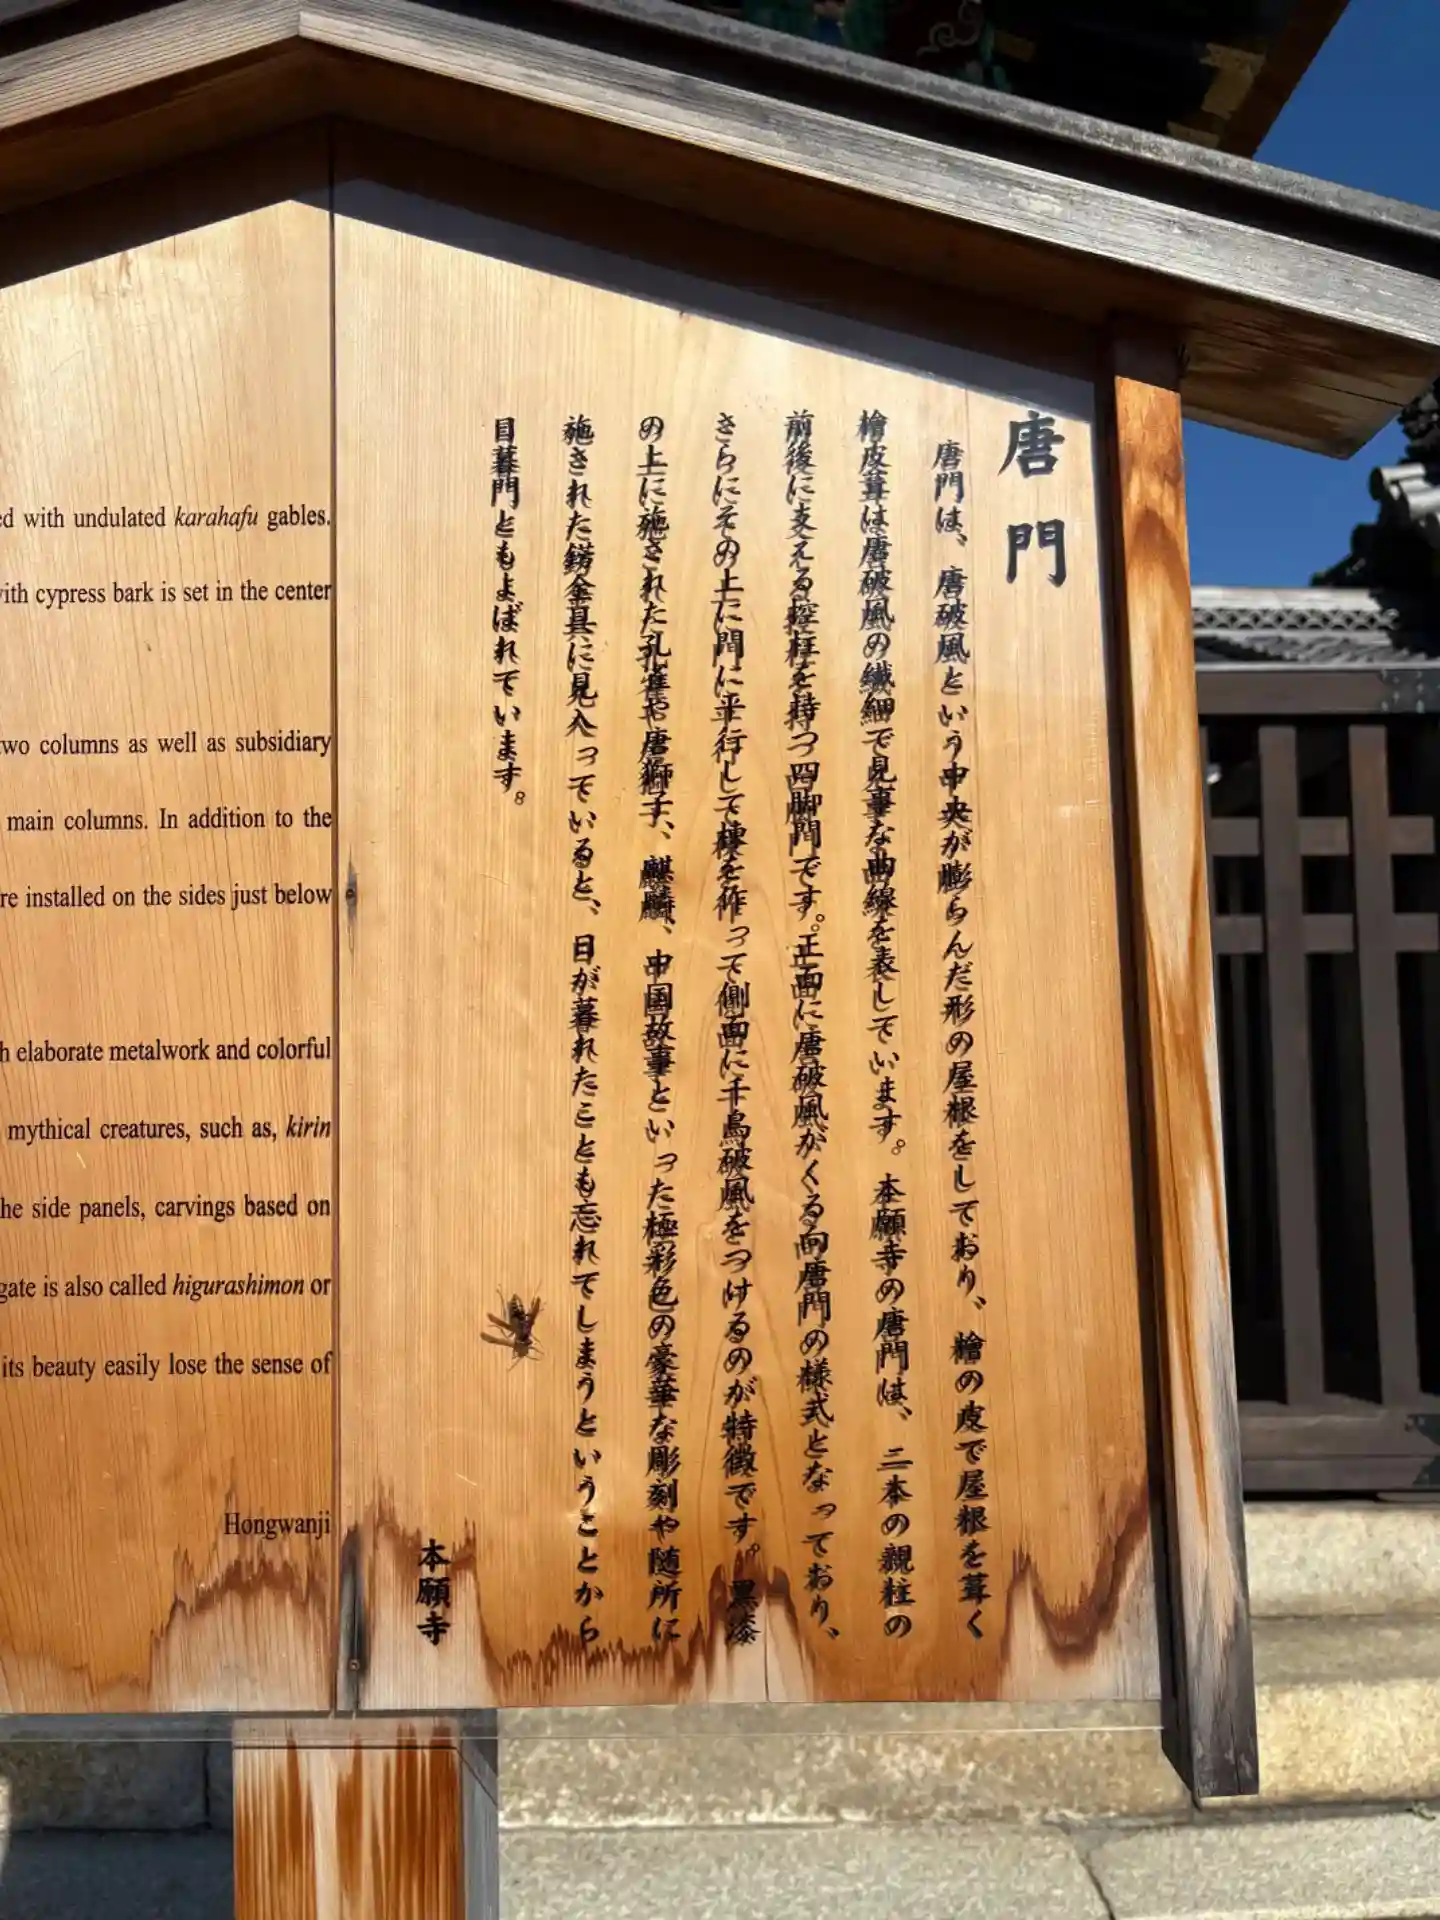 唐門
唐門は、唐破風という中央が膨らんだ形の屋根をしており、檜の皮で屋根を葺く
檜皮葺は唐破風の繊細で見事な曲線を表しています。本願寺の唐門は、二本の親柱の
前後に支える控柱を持つ四脚門です。正面に唐破風がくる向唐門の様式となっており、
さらにその上に間に平行して棟を作って側面に千鳥破風をつけるのが特徴です。黒漆
の上に施された孔雀や唐獅子、麒麟、中国故事といった極彩色の豪華な彫刻や随所に
施された錺金具に見入っていると、日が暮れたことも忘れてしまうということから
日暮門ともよばれています。
本願寺
ed with undulated karahafu gables.
with cypress bark is set in the center
two columns as well as subsidiary
main columns. In addition to the
re installed on the sides just below
h elaborate metalwork and colorful
mythical creatures, such as, kirin
he side panels, carvings based on
gate is also called higurashimon or
its beauty easily lose the sense of
Hongwanji